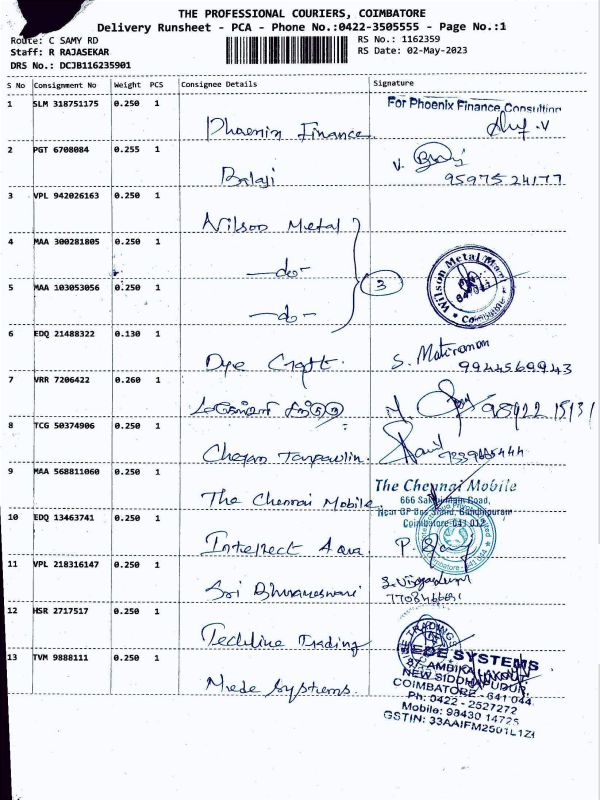 THE PROFESSIONAL COURIERS, COIMBATORE
Delivery Runsheet - PCA - Phone No.:0422-3505555 - Page No.:1
Route: C SAMY RD
RS No.: 1162359
Staff: R RAJASEKAR
RS Date: 02-May-2023
DRS No.: DCJB116235901
S No Consignment No Weight PCS Consignee Details Signature
1 SLM 318751175 0.250 1
For Phoenix Finance Consulting
Phoenix Finance
2 PGT 6708084 0.255 1
Balaji
95975 24177
3 VPL 942026163 0.250 1
Wilson Metal
4 MAA 300281805 0.250 1
—do—
Wilson Metal Mart
Coimbatore
5 MAA 103053056 0.250 1
3
—do—
6 EDQ 21488322 0.130 1
Dye Craft.
9944569943
7 VRR 7206422 0.260 1
8 TCG 50374906 0.250 1
Cheyam Tarpaulin.
9 MAA 568811060 0.250 1
The Chennai Mobile
666 Sathy Main Road,
Near GP Bus Stand, Gandhipuram
Coimbatore-641 012
The Chennai Mobile
10 EDQ 13463741 0.250 1
Intellect Aqua
11 VPL 218316147 0.250 1
Sri Bhuvaneswari
12 HSR 2717517 0.250 1
Techline Trading
13 TVM 9888111 0.250 1
Mede Systems.
MEDE SYSTEMS
87, AMBIKA LAYOUT
NEW SIDDHAPUDUR,
COIMBATORE - 641 044.
Ph: 0422 - 2527272
Mobile: 98430 14725